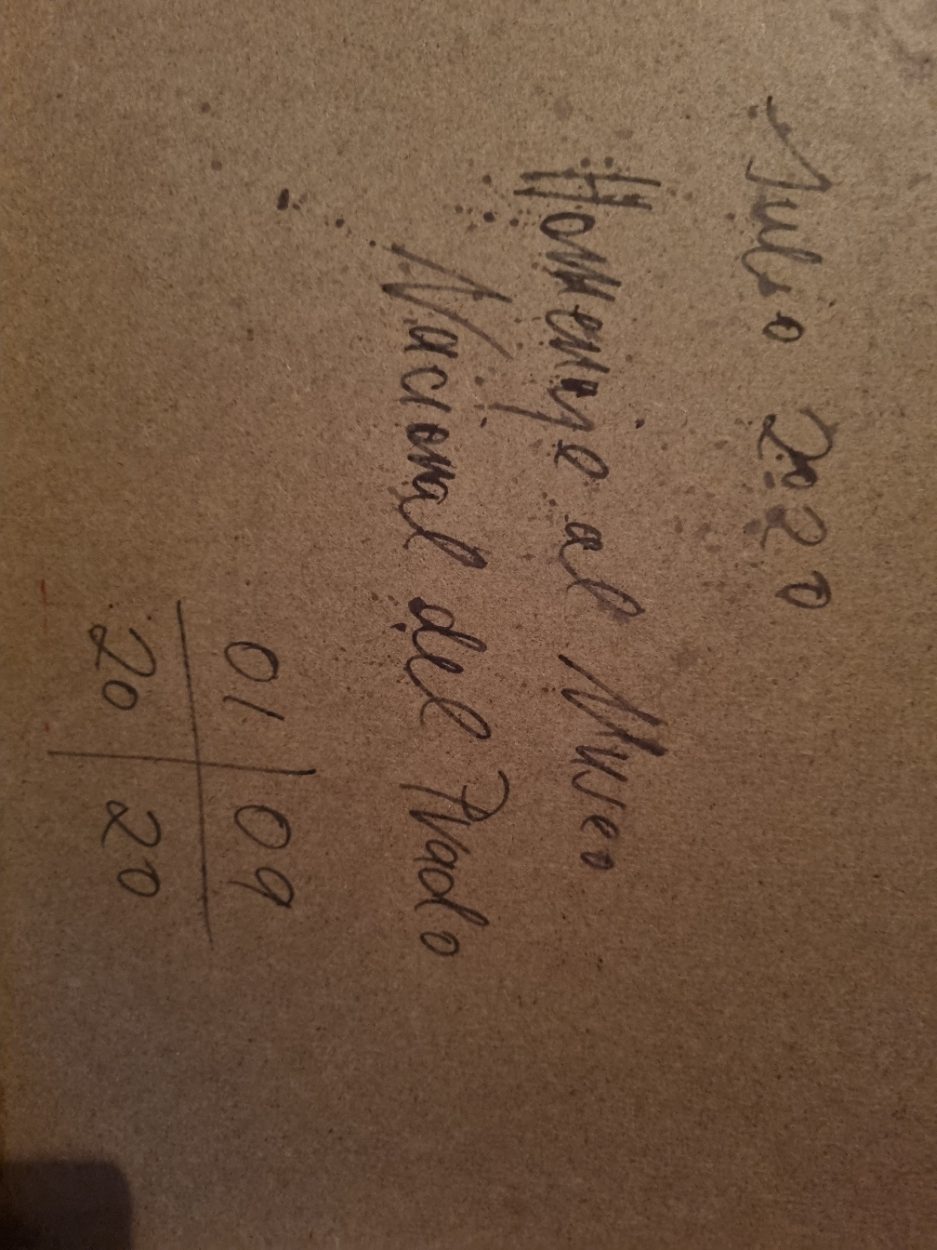 Julio 2020
Homenaje al Museo
Nacional del Prado
01 09
20 20